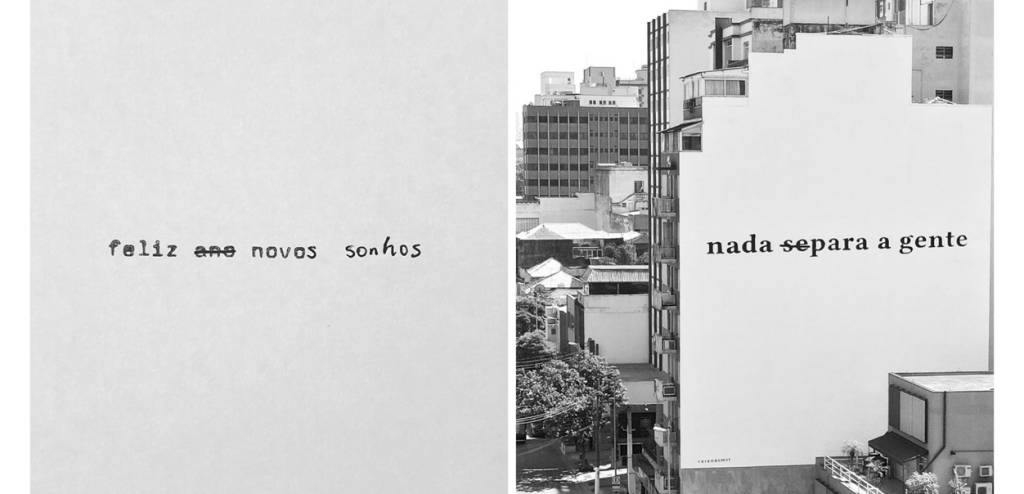 feliz ano novos sonhos
nada separa a gente